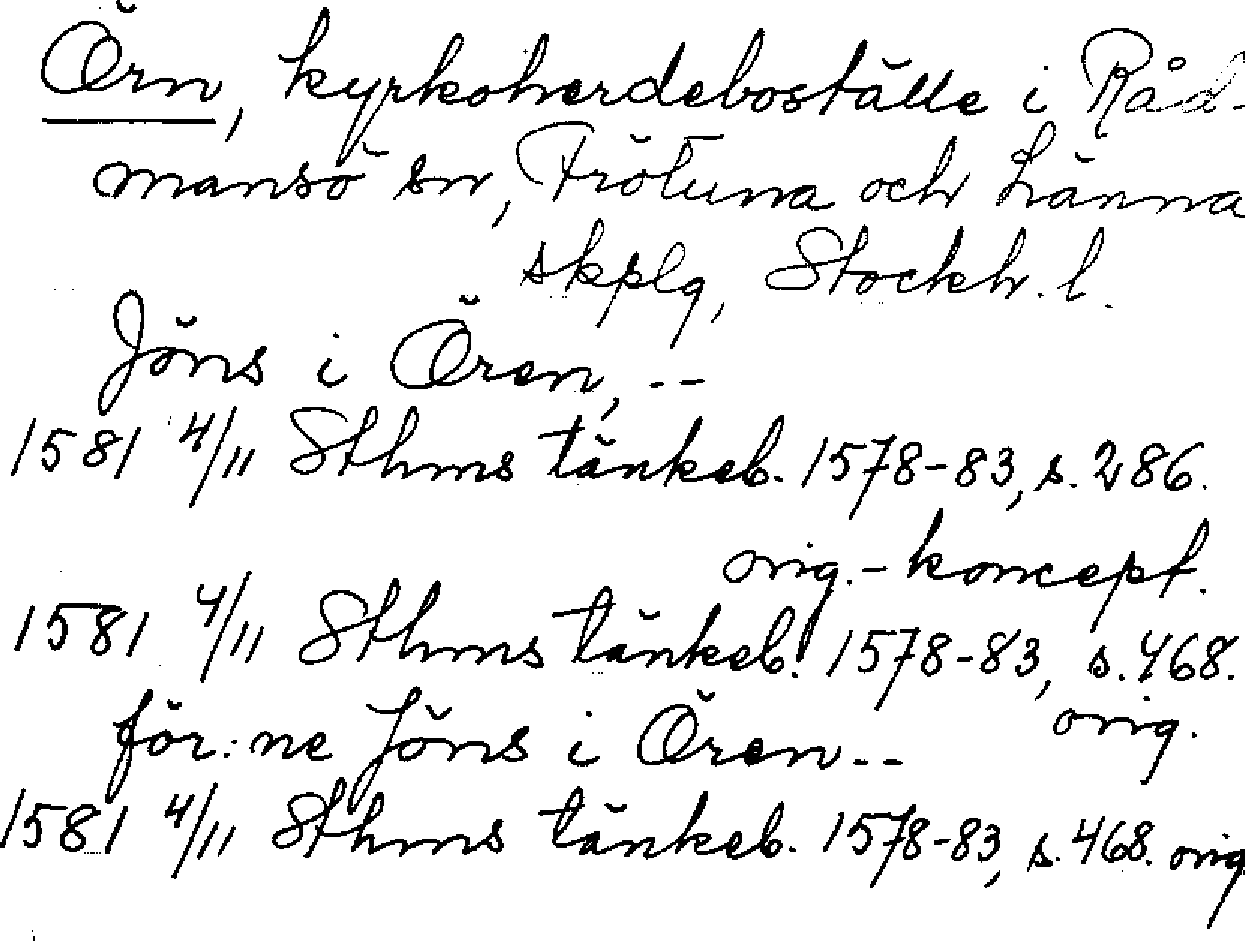 Örn, kyrkoherdeboställe i Råd-
mansö sn, Frötuna och Länna
skplg, Stockh. l.
Jöns i Ören, --
1581 4/11 Sthms tänkeb. 1578-83, s. 286.
orig.-koncept.
1581 4/11 Sthms tänkeb. 1578-83, s. 468.
orig.
för:ne Jöns i Ören --
1581 4/11 Sthms tänkeb. 1578-83, s. 468. orig